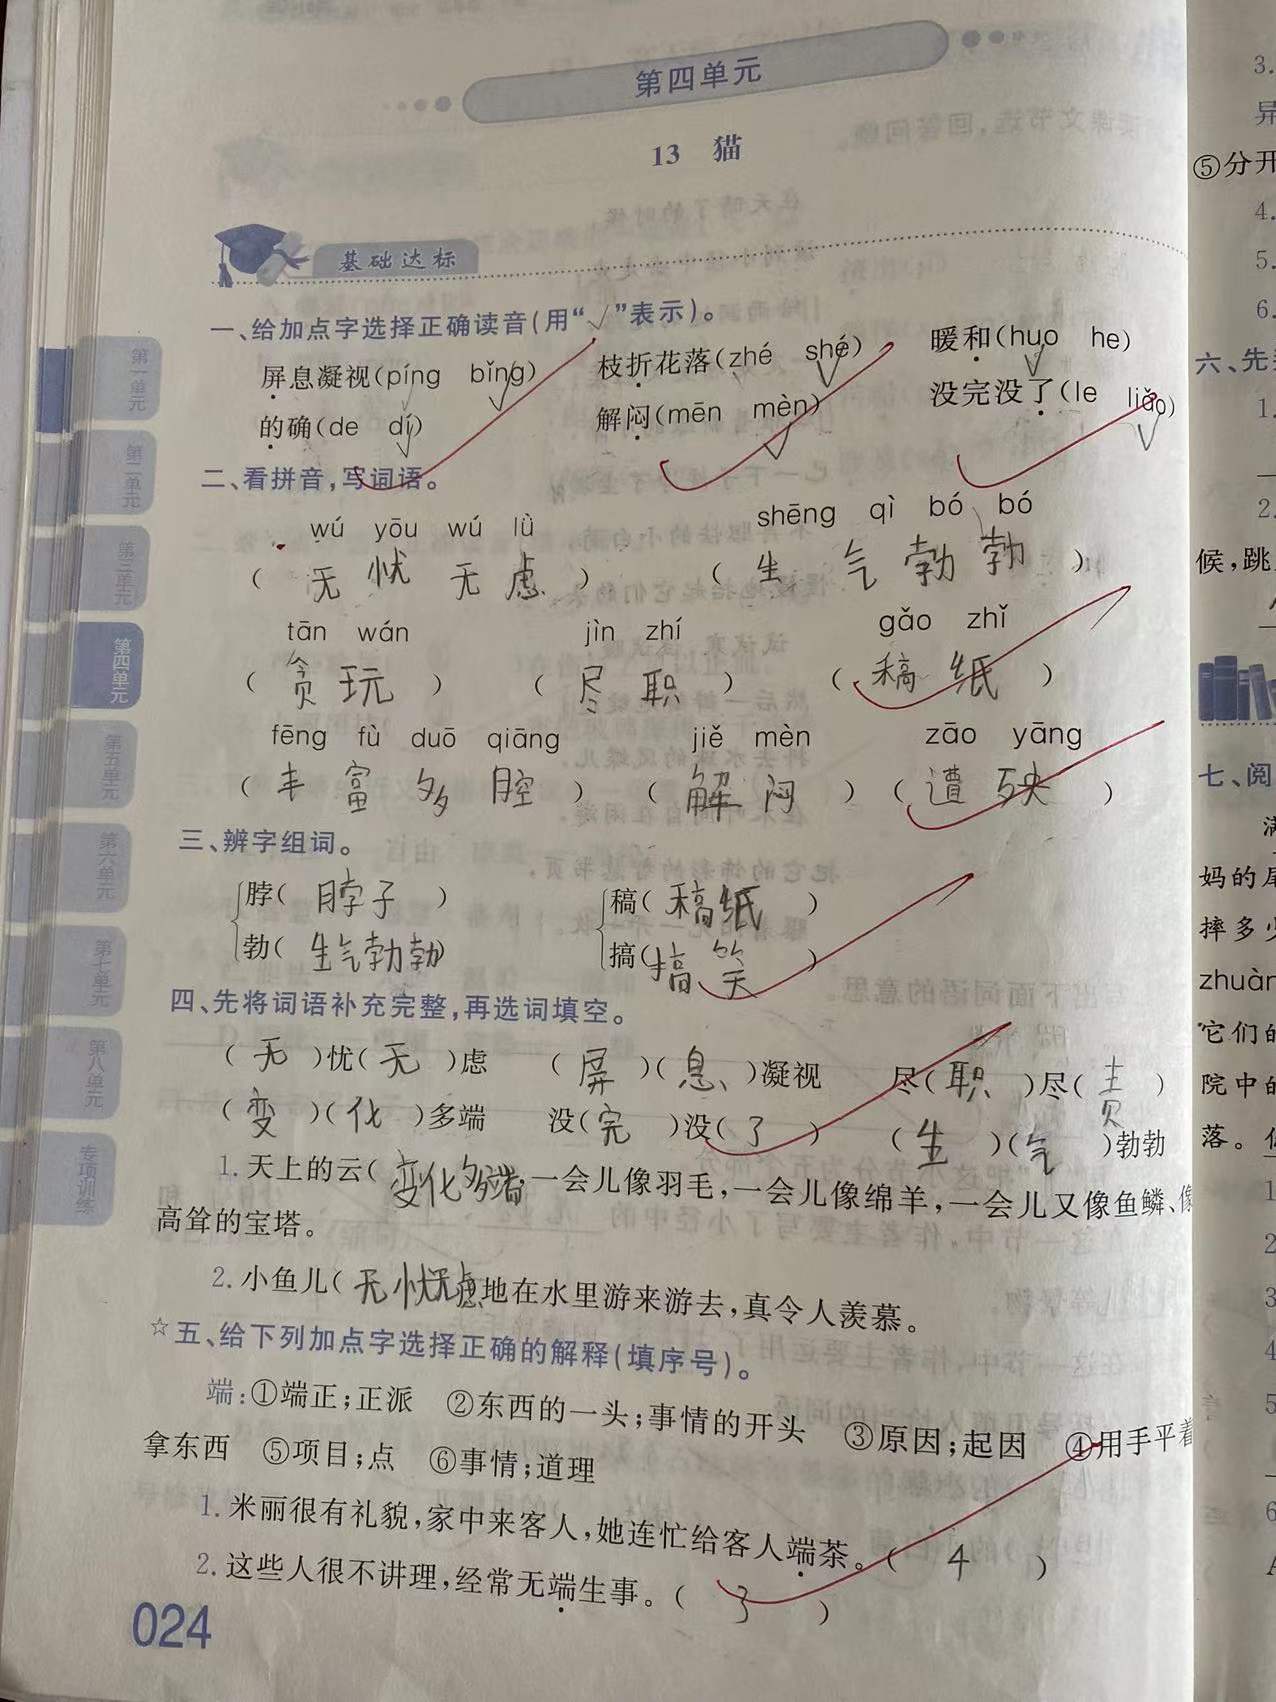 第四单元
13 猫
基础达标
一、给加点字选择正确读音(用“√”表示)。
屏息凝视(píng bǐng) 枝折花落(zhé shé) 暖和(huo he)
的确(de dí) 解闷(mēn mèn) 没完没了(le liǎo)
二、看拼音,写词语。
wú yōu wú lǜ shēng qì bó bó
(无忧无虑) (生气勃勃)
tān wán jìn zhí gǎo zhǐ
(贪玩) (尽职) (稿纸)
fēng fù duō qiāng jiě mèn zāo yāng
(丰富多腔) (解闷) (遭殃)
三、辨字组词。
脖(脖子) 稿(稿纸)
勃(生气勃勃) 搞(搞笑)
四、先将词语补充完整,再选词填空。
(无)忧(无)虑 (屏)(息)凝视 尽(职)尽(责)
(变)(化)多端 没(完)没(了) (生)(气)勃勃
1.天上的云(变化多端,一会儿像羽毛,一会儿像绵羊,一会儿又像鱼鳞、像
高耸的宝塔。
2.小鱼儿(无忧无虑地在水里游来游去,真令人羡慕。
☆五、给下列加点字选择正确的解释(填序号)。
端:①端正;正派 ②东西的一头;事情的开头 ③原因;起因 ④用手平着
拿东西 ⑤项目;点 ⑥事情;道理
1.米丽很有礼貌,家中来客人,她连忙给客人端茶。(4)
2.这些人很不讲理,经常无端生事。(3)
024
第一单元
第二单元
第三单元
第四单元
第五单元
第六单元
第七单元
第八单元
专项训练
3.
异
⑤分开
4.
5.
6.
六、先
1.
2.
候,跳
七、阅
满
妈的尾
摔多少
zhuàn
它们的
院中的
落。
1
2
3
4
5
6